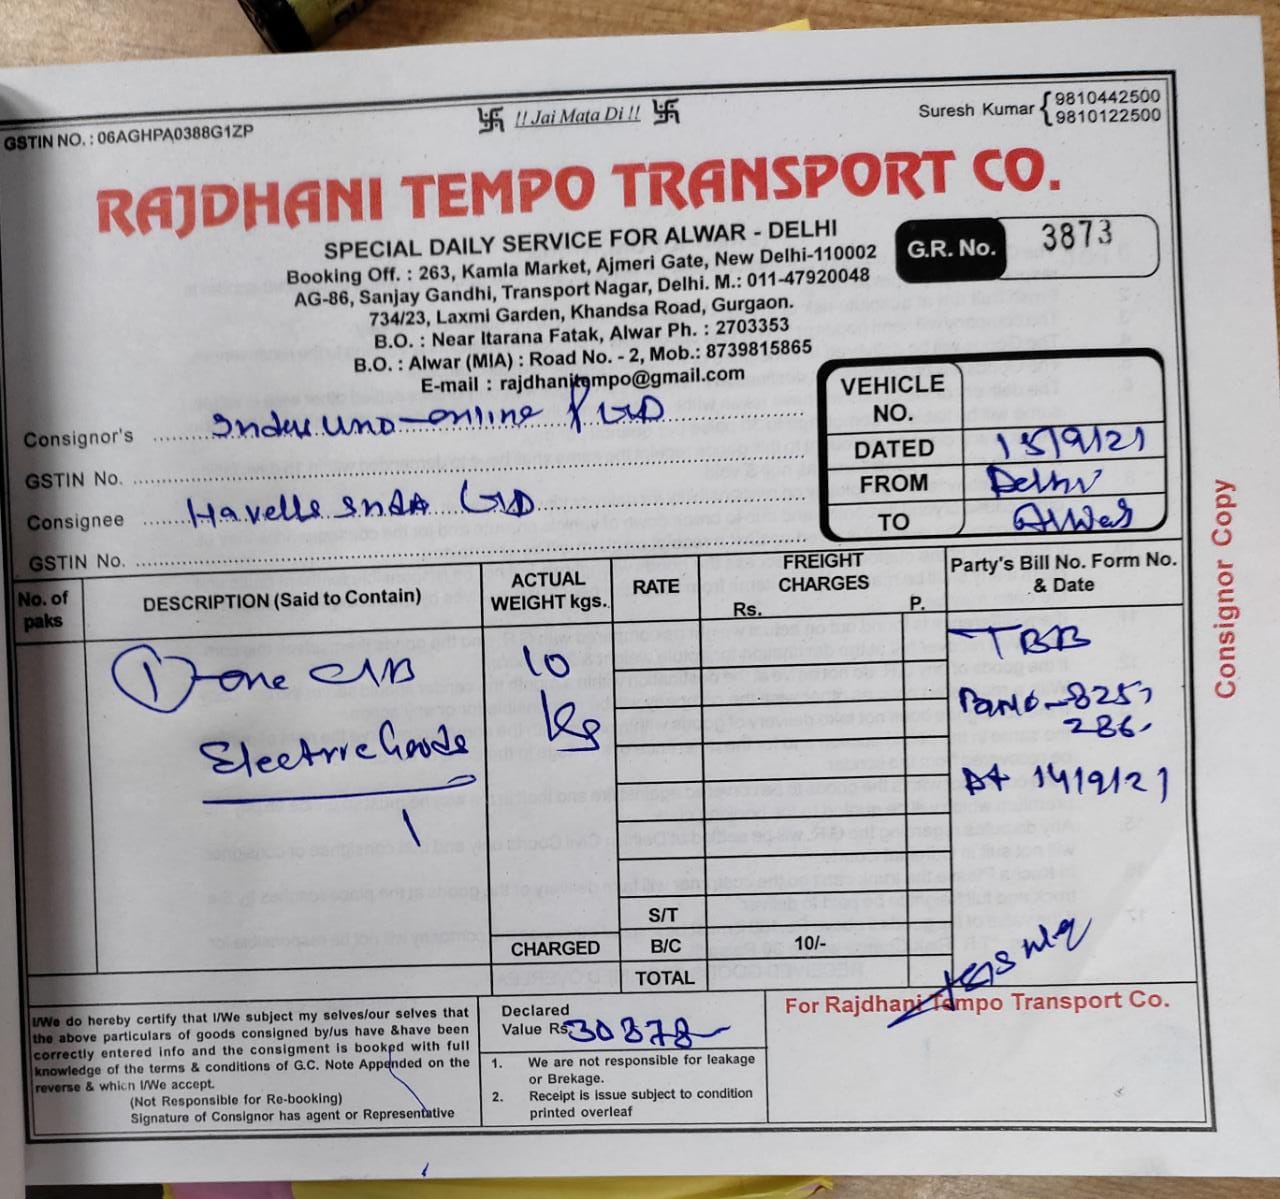 GSTIN NO. : 06AGHPA0388G1ZP
!! Jai Mata Di !!
Suresh Kumar { 9810442500
9810122500
RAJDHANI TEMPO TRANSPORT CO.
SPECIAL DAILY SERVICE FOR ALWAR - DELHI
Booking Off. : 263, Kamla Market, Ajmeri Gate, New Delhi-110002
AG-86, Sanjay Gandhi, Transport Nagar, Delhi. M.: 011-47920048
734/23, Laxmi Garden, Khandsa Road, Gurgaon.
B.O. : Near Itarana Fatak, Alwar Ph. : 2703353
B.O. : Alwar (MIA) : Road No. - 2, Mob.: 8739815865
E-mail : rajdhanitempo@gmail.com
G.R. No. 3873
Consignor's
online P Ltd
GSTIN No.
Consignee Havells India Ltd
GSTIN No.
VEHICLE NO.
DATED 15/9/21
FROM Delhi
TO Alwar
No. of paks
DESCRIPTION (Said to Contain)
ACTUAL WEIGHT kgs.
RATE
FREIGHT CHARGES
Rs. P.
Party's Bill No. Form No. & Date
1 one
Electric Goods
1
10
Kg
TBB
8257
286
Dt 14/9/21
S/T
CHARGED B/C 10/-
TOTAL
I/We do hereby certify that I/We subject my selves/our selves that
the above particulars of goods consigned by/us have &have been
correctly entered info and the consigment is booked with full
knowledge of the terms & conditions of G.C. Note Appended on the
reverse & which I/We accept.
(Not Responsible for Re-booking)
Signature of Consignor has agent or Representative
Declared
Value Rs. 30378
1. We are not responsible for leakage
or Brekage.
2. Receipt is issue subject to condition
printed overleaf
For Rajdhani Tempo Transport Co.
Consignor Copy